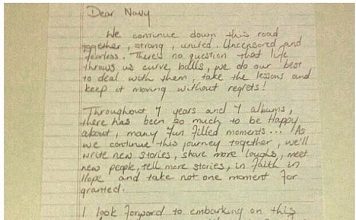 Dear Navy
We continue down this road
together, strong, united. Uncensored and
fearless. There's no question that life
throws us curve balls, we do our best
to deal with them, take the lessons and
keep it moving without regrets!
Throughout 7 years and 7 albums,
there has been so much to be happy
about, many fun filled moments... As
we continue this journey together, we'll
write new stories, share more laughs, meet
new people, tell more stories, in faith in
Hope and take not one moment for
granted.
I look forward to embarking on this